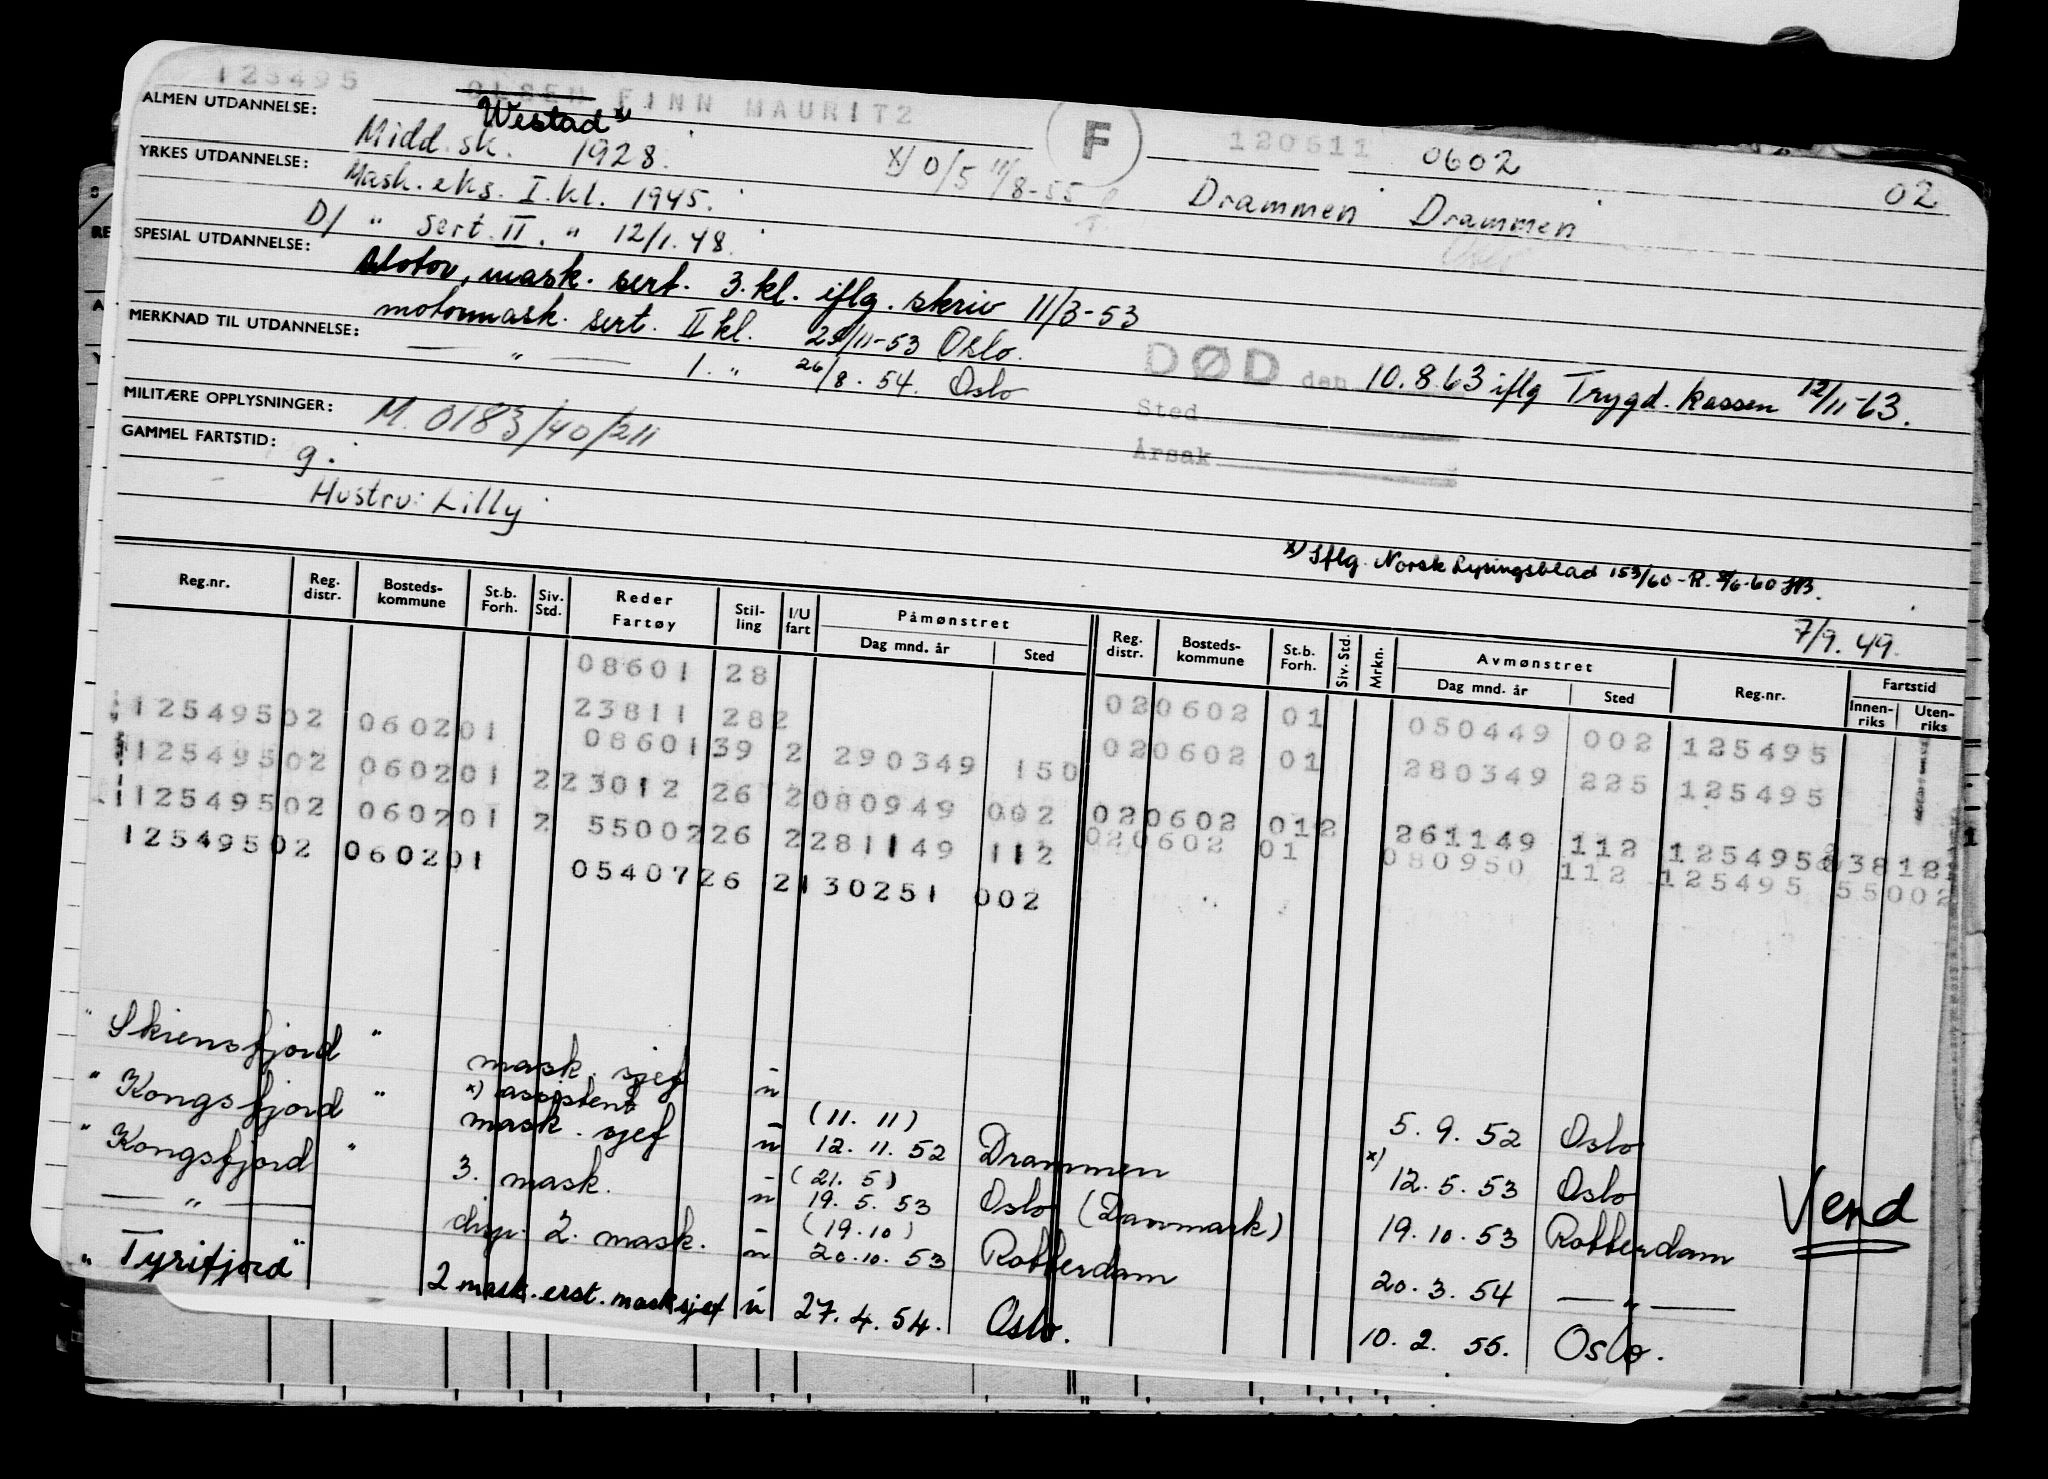 125495 OLSEN FINN MAURITZ F 120611 0602 02
Westad x)
ALMEN UTDANNELSE: Midd.sk. 1928. x) 0/5 11/8-55 Drammen Drammen
YRKES UTDANNELSE: Mask. eks. I. kl. 1945.
D/ " Sert. II. " 12/1.48.
SPESIAL UTDANNELSE: Motor, mask. sert. 3. kl. iflg. skriv 11/3-53
motormask. sert. II kl. 25/11-53 Oslo.
MERKNAD TIL UTDANNELSE: — " — 1. " 26/8. 54. Oslo
DØD den 10.8.63 iflg Trygd. kassen 12/11-63.
Sted
Årsak
MILITÆRE OPPLYSNINGER: M. 0183/40/211
GAMMEL FARTSTID: g.
Hustru: Lilly
x) Iflg. Norsk Lysingsblad 153/60-R. 7/6-60
7/9. 49.
Reg.nr. Reg. distr. Bosteds-kommune St.b. Forh. Siv. Std. Reder Fartøy Stil-ling I/U fart Påmønstret Dag mnd. år Sted Reg. distr. Bosteds-kommune St.b. Forh. Siv. Std. Mrkn. Avmønstret Dag mnd. år Sted Reg.nr. Fartstid Innen-riks Uten-riks
08601 28 020602 01 050449 002 125495
125495 02 0602 01 23811 28 2 020602 01 280349 225 125495
125495 02 0602 01 2 08601 39 2 290349 150
125495 02 0602 01 2 23012 26 2 080949 002 020602 01 2 261149 112 125495 23812
125495 02 0602 01 55002 26 2 281149 112 020602 01 080950 112 125495 55002
05407 26 2 130251 002
" Skiensfjord " mask. sjef u 5. 9. 52 Oslo
x) assistent (11. 11) x)
" Kongsfjord " mask. sjef u 12. 11. 52 Drammen 12. 5. 53 Oslo
(21. 5)
" Kongsfjord " 3. mask. u 19. 5. 53 Oslo (Danmark) 19. 10. 53 Rotterdam
(19.10)
— " — disp. 2. mask. u 20. 10. 53 Rotterdam 20. 3. 54 — " —
" Tyrifjord " 2 mask. erst. masksjef u 27. 4. 54. Oslo. 10. 2. 55. Oslo.
Vend